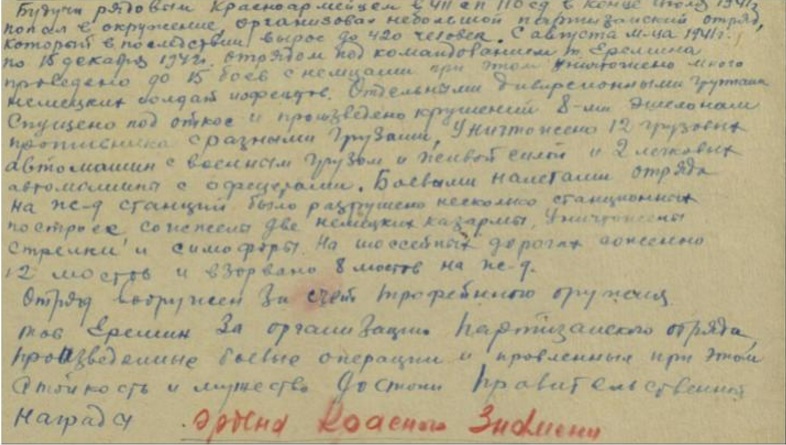 Будучи рядовым Красноармейцем в 411 сп 110 сд в конце июля 1941г
попал в окружение, организовал небольшой партизанский отряд,
который в последствии вырос до 420 человек. С августа м-ца 1941г.
по 15 декабря 194 г. отрядом под командованием т. Еремина
проведено до 15 боев с немцами при этом уничтожено много
немецких солдат и офицеров. Отдельными диверсионными группами
спущено под откос и произведено крушений 8-ми эшелонам
противника с разными грузами, Уничтожено 12 грузовых
автомашин с военным грузом и живой силой и 2 легковых
автомашины с офицерами. Боевыми налетами отряда
на ж-д станций было разрушено несколько станционных
построек сожжены две немецких казармы, Уничтожены
стрелки и симофоры. На шоссейных дорогах сожжено
12 мостов и взорвано 8 мостов на ж-д.
Отряд вооружен за счет трофейного оружия
тов Еремин за организацию партизанского отряда,
произведенные боевые операции и провленные при этом
стойкость и мужество Достоин правительственной
награды ордена Красного Знамени